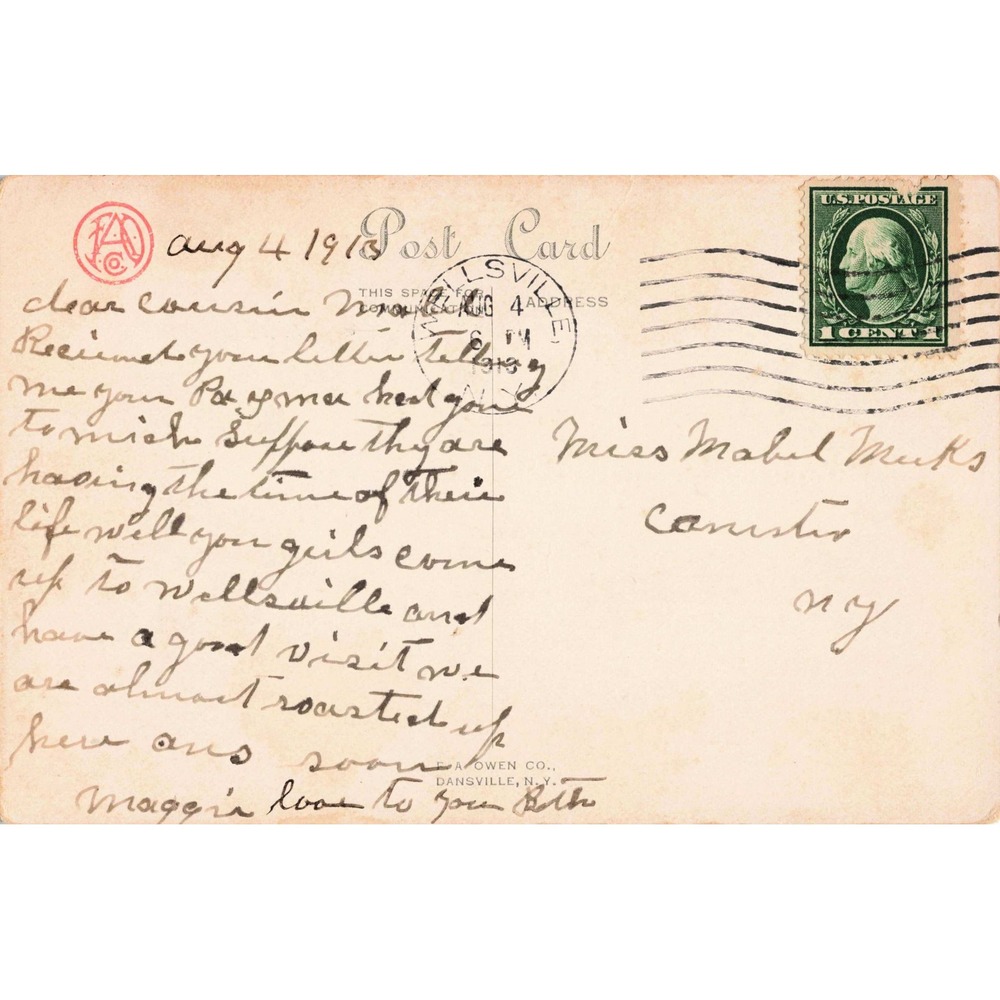 Post Card
aug 4 1913
THIS SPACE FOR
COMMUNICATION
ADDRESS
WELLSVILLE
AUG 4
6 PM
1913
N.Y.
U.S. POSTAGE
1 CENT 1
dear cousin
Recieved your letter telling
me your Pa & ma had gone
to mich Suppose thy are
having the time of their
life will you girls come
up to Wellsville and
have a good visit we
are almost roasted up
here ans soon
Maggie love to you Both
Miss Mabel Meeks
Canisteo
ny
F. A. OWEN CO.,
DANSVILLE, N. Y.